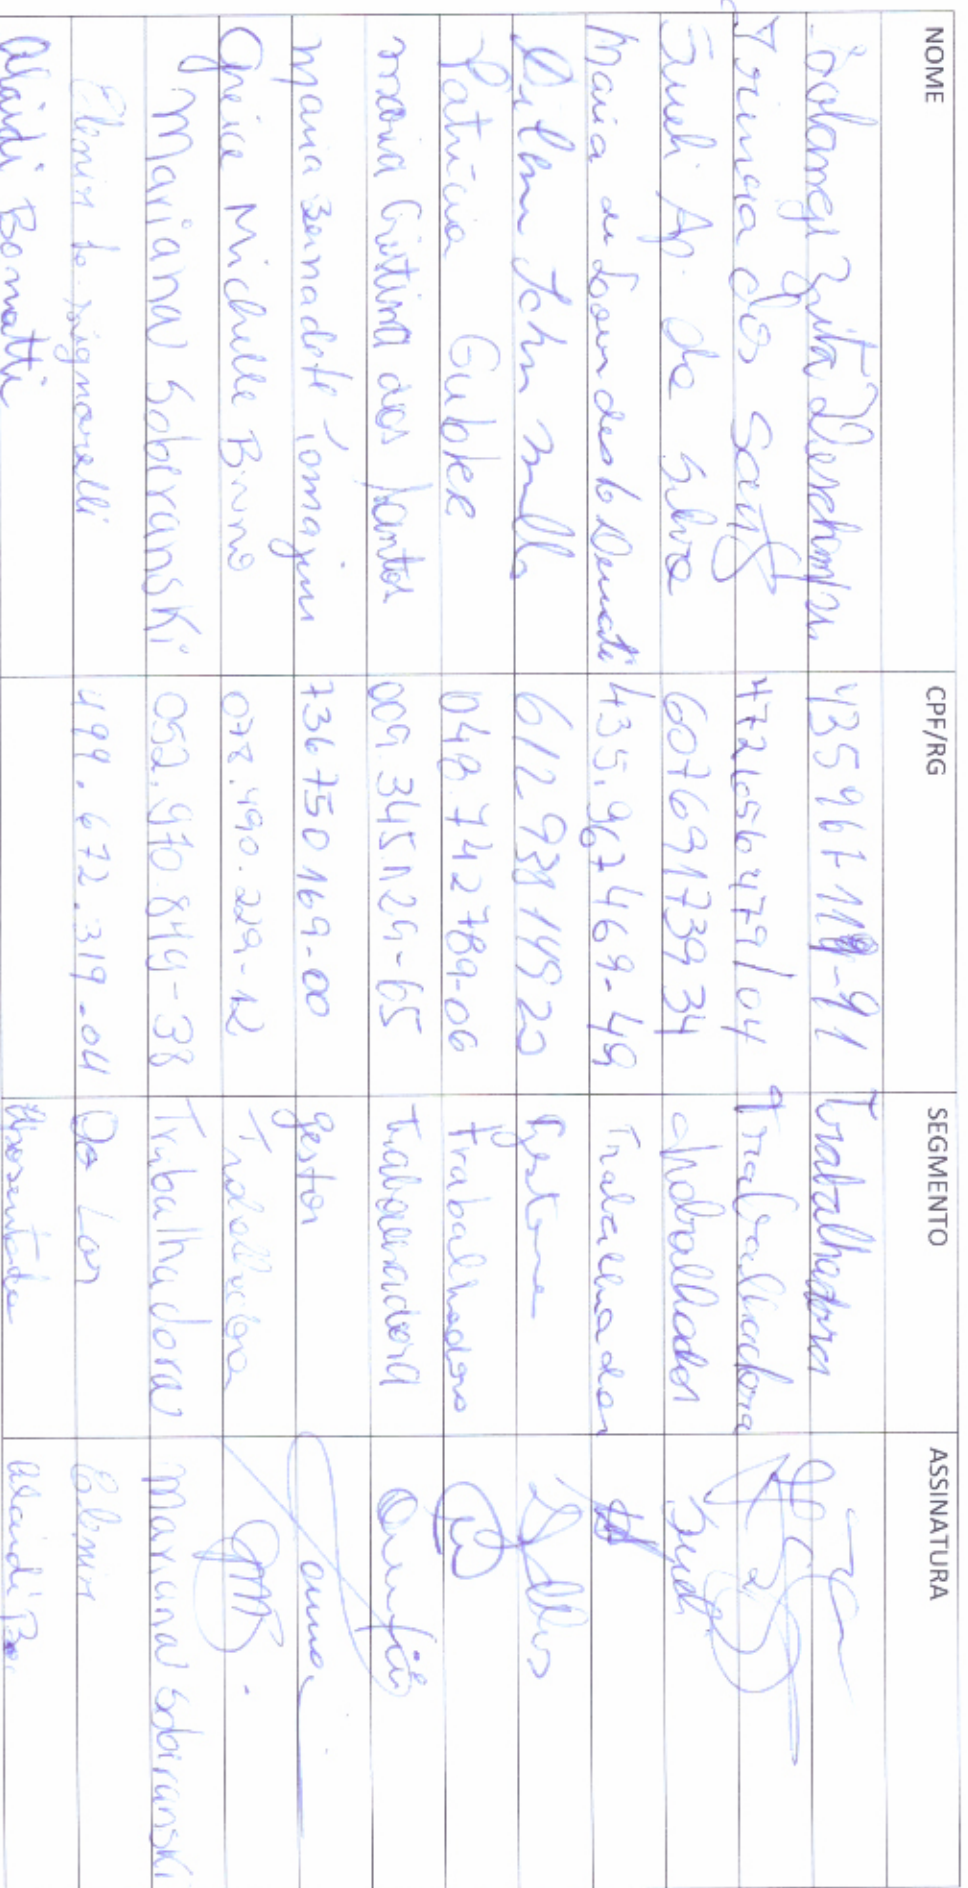 NOME CPF/RG SEGMENTO ASSINATURA
Solange Zita 435967119-91 Trabalhadora
dos Santos 472656479/04 Trabalhadora
Sueli Ap. da Silva 60769173934 Trabalhador Sueli
Maria de Lourdes 435.967469-49 Trabalhador
61293814920 Gestora
Patricia Gubler 048.742789-06 Trabalhadora
Maria Cristina dos Santos 009.345.129-65 Trabalhadora
Maria Bernadete Tomazini 736750169-00 gestor
Greice Michelle Bruno 078.490.229-12
Mariana Soberanski 052.970.849-38 Trabalhadora Mariana Soberanski
499.672.319-04 Do Lar Elenir
Alaidi Bonatti Aposentada Alaidi Bo.